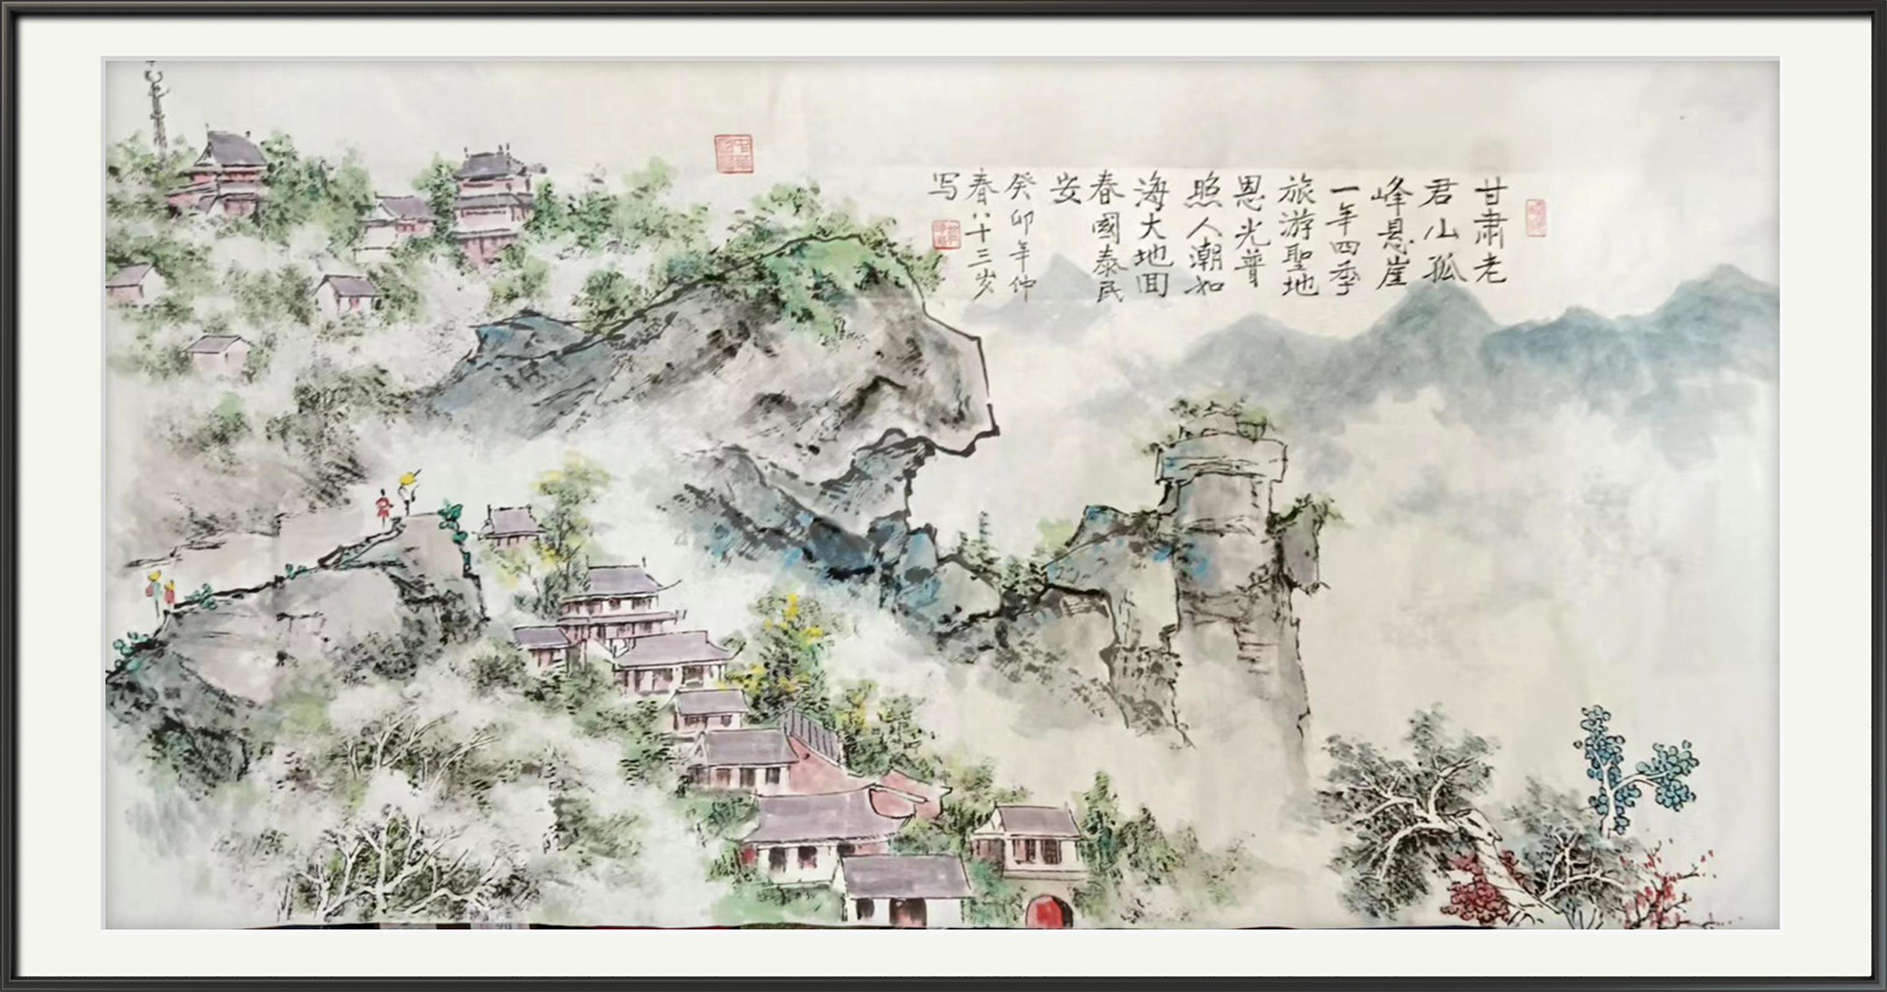 甘肃老
君山孤
峰悬崖
一年四季
旅游聖地
恩光普
照人潮如
海大地回
春國泰民
安
癸卯年仲
春八十三岁
写